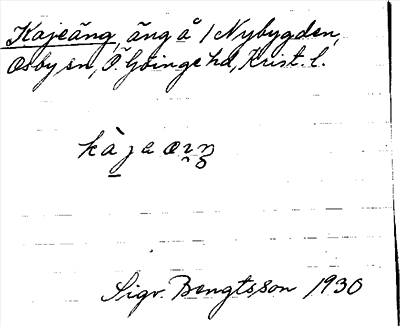 Kajeäng, äng å / Nybygden,
Osby sn, Ö. Göinge hd, Krist. l.
Sigv. Bengtsson 1930